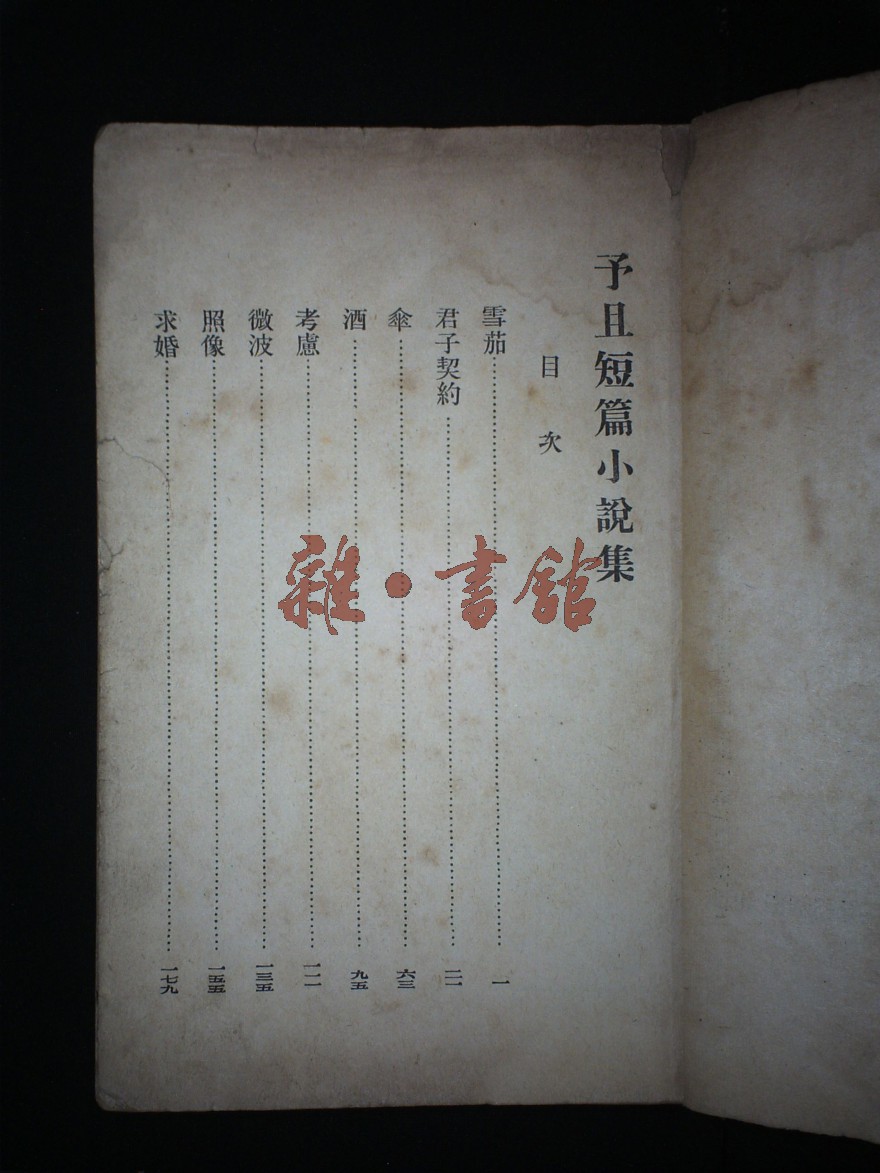 予且短篇小說集
目次
雪茄……一
君子契約……二一
傘……六三
酒……九五
考慮……一一一
微波……一三五
照像……一五五
求婚……一七九
雜·書館